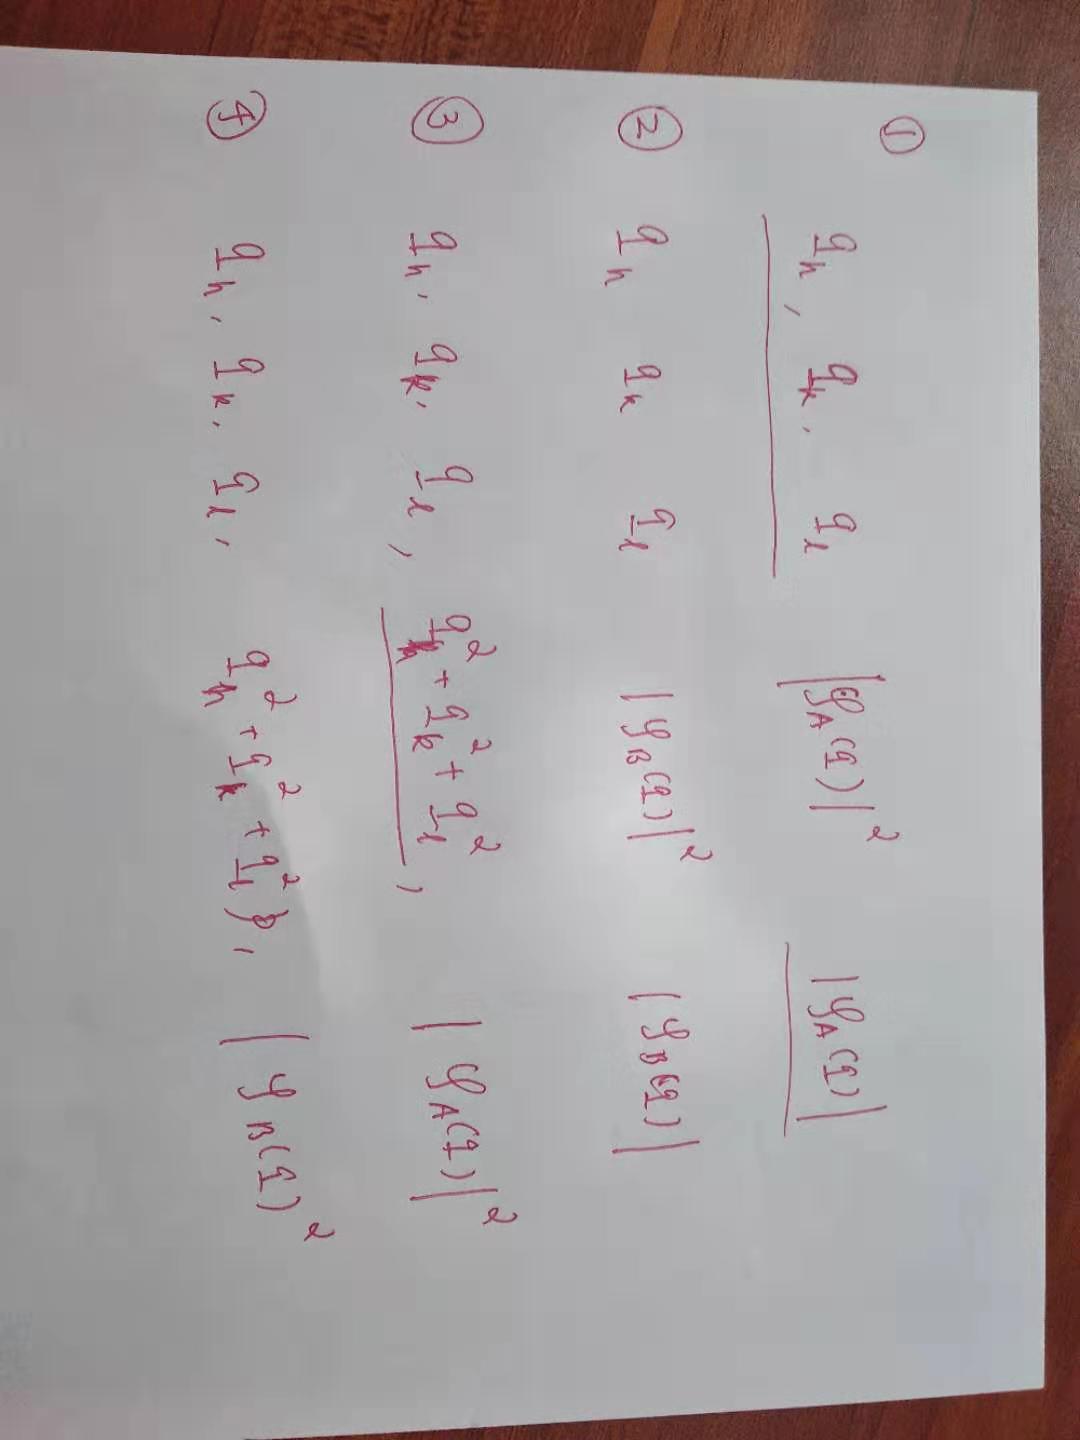 ① q_h, q_k. q_l |φ_A(q)|² |φ_A(q)|
② q_h q_k q_l |φ_B(q)|² |φ_B(q)|
③ q_h, q_k, q_l, q_h² + q_k² + q_l², |φ_A(q)|²
④ q_h, q_k, q_l, q_h² + q_k² + q_l²), |φ_B(q)²